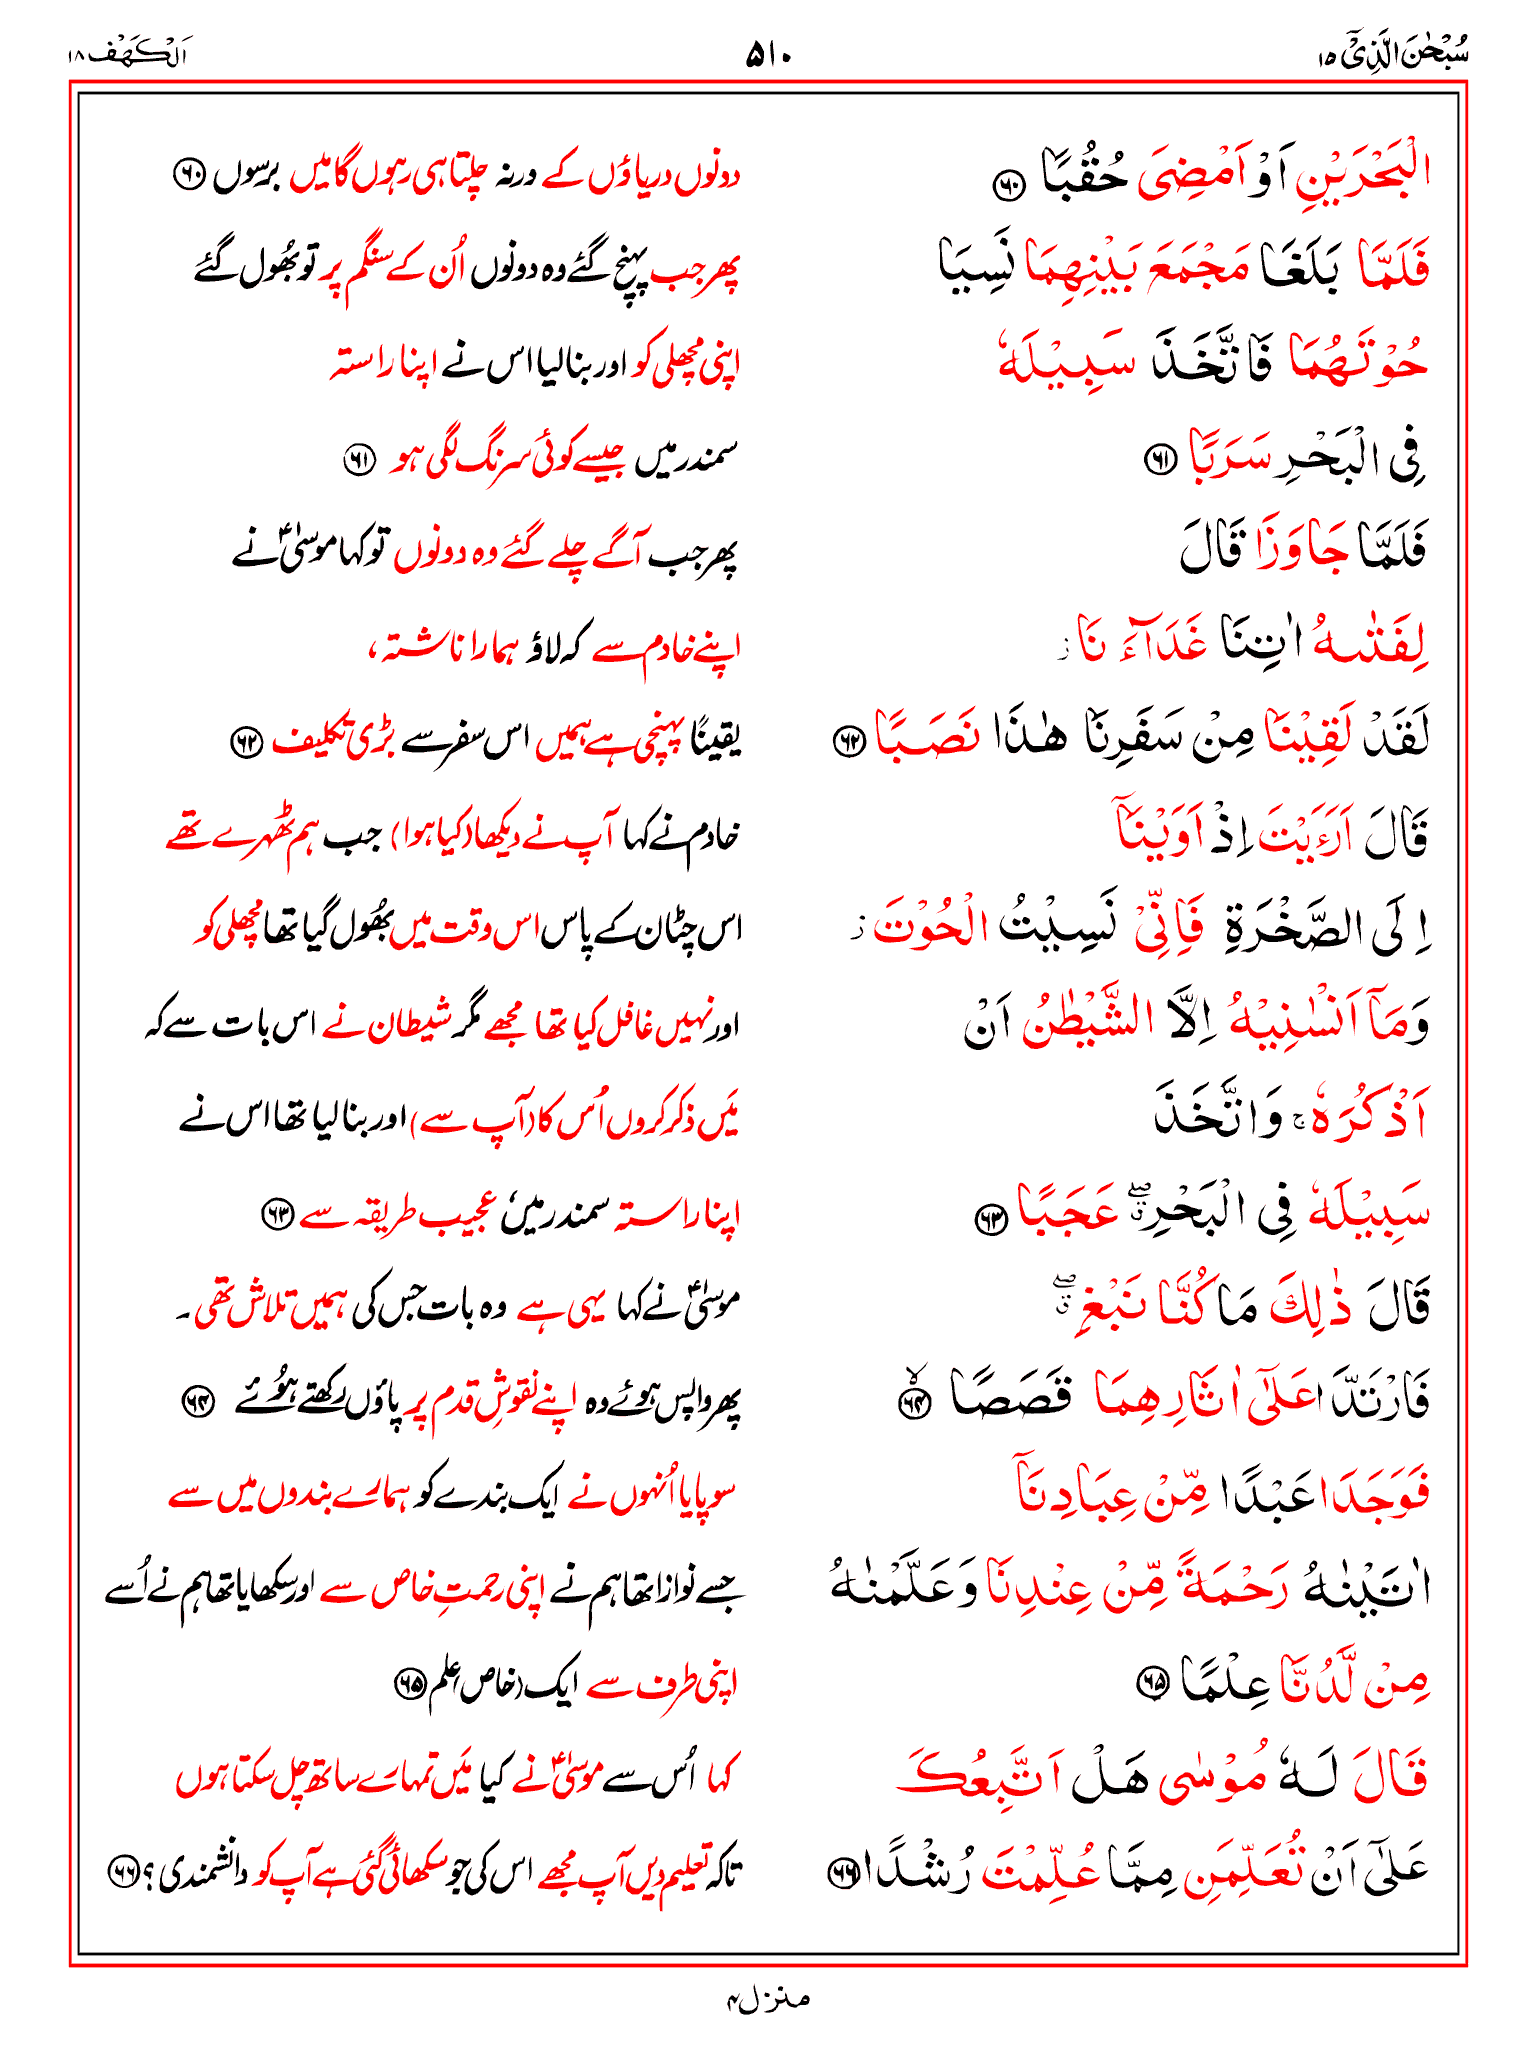 سُبْحٰنَ الَّذِیْۤ ۱۵ ۵۱۰ اَلْكَهْف ۱۸
الْبَحْرَیْنِ اَوْ اَمْضِیَ حُقُبًا ﴿۶۰﴾ دونوں دریاؤں کے ورنہ چلتا ہی رہوں گا میں برسوں ﴿۶۰﴾
فَلَمَّا بَلَغَا مَجْمَعَ بَیْنِهِمَا نَسِیَا پھر جب پہنچ گئے وہ دونوں اُن کے سنگم پر تو بھُول گئے
حُوْتَهُمَا فَاتَّخَذَ سَبِیْلَهٗ اپنی مچھلی کو اور بنالیا اس نے اپنا راستہ
فِی الْبَحْرِ سَرَبًا ﴿۶۱﴾ سمندر میں جیسے کوئی سرنگ لگی ہو ﴿۶۱﴾
فَلَمَّا جَاوَزَا قَالَ پھر جب آگے چلے گئے وہ دونوں تو کہا موسیٰؑ نے
لِفَتٰىهُ اٰتِنَا غَدَآءَ نَا ز اپنے خادم سے کہ لاؤ ہمارا ناشتہ،
لَقَدْ لَقِیْنَا مِنْ سَفَرِنَا هٰذَا نَصَبًا ﴿۶۲﴾ یقینًا پہنچی ہے ہمیں اس سفر سے بڑی تکلیف ﴿۶۲﴾
قَالَ اَرَءَیْتَ اِذْ اَوَیْنَاۤ خادم نے کہا آپ نے دیکھا (کیا ہوا) جب ہم ٹھہرے تھے
اِلَی الصَّخْرَةِ فَاِنِّیْ نَسِیْتُ الْحُوْتَ ز اس چٹان کے پاس اس وقت میں بھُول گیا تھا مچھلی کو
وَمَاۤ اَنْسٰنِیْهُ اِلَّا الشَّیْطٰنُ اَنْ اور نہیں غافل کیا تھا مجھے مگر شیطان نے اس بات سے کہ
اَذْكُرَهٗ ۚ وَاتَّخَذَ مَیں ذکر کروں اُس کا (آپ سے) اور بنالیا تھا اس نے
سَبِیْلَهٗ فِی الْبَحْرِ ۖۗ عَجَبًا ﴿۶۳﴾ اپنا راستہ سمندر میں عجیب طریقہ سے ﴿۶۳﴾
قَالَ ذٰلِكَ مَا كُنَّا نَبْغِ ۖۗ موسیٰؑ نے کہا یہی ہے وہ بات جس کی ہمیں تلاش تھی۔
فَارْتَدَّا عَلٰۤی اٰثَارِهِمَا قَصَصًا ﴿۶۴﴾ۙ پھر واپس ہوئے وہ اپنے نقوشِ قدم پر پاؤں رکھتے ہُوئے ﴿۶۴﴾
فَوَجَدَا عَبْدًا مِّنْ عِبَادِنَاۤ سو پایا اُنہوں نے ایک بندے کو ہمارے بندوں میں سے
اٰتَیْنٰهُ رَحْمَةً مِّنْ عِنْدِنَا وَعَلَّمْنٰهُ جسے نوازا تھا ہم نے اپنی رحمتِ خاص سے اور سکھایا تھا ہم نے اُسے
مِنْ لَّدُنَّا عِلْمًا ﴿۶۵﴾ اپنی طرف سے ایک (خاص) علم ﴿۶۵﴾
قَالَ لَهٗ مُوْسٰی هَلْ اَتَّبِعُكَ کہا اُس سے موسیٰؑ نے کیا مَیں تمہارے ساتھ چل سکتا ہوں
عَلٰۤی اَنْ تُعَلِّمَنِ مِمَّا عُلِّمْتَ رُشْدًا ﴿۶۶﴾ تاکہ تعلیم دیں آپ مجھے اس کی جو سکھائی گئی ہے آپ کو دانشمندی؟ ﴿۶۶﴾
منزل ۴